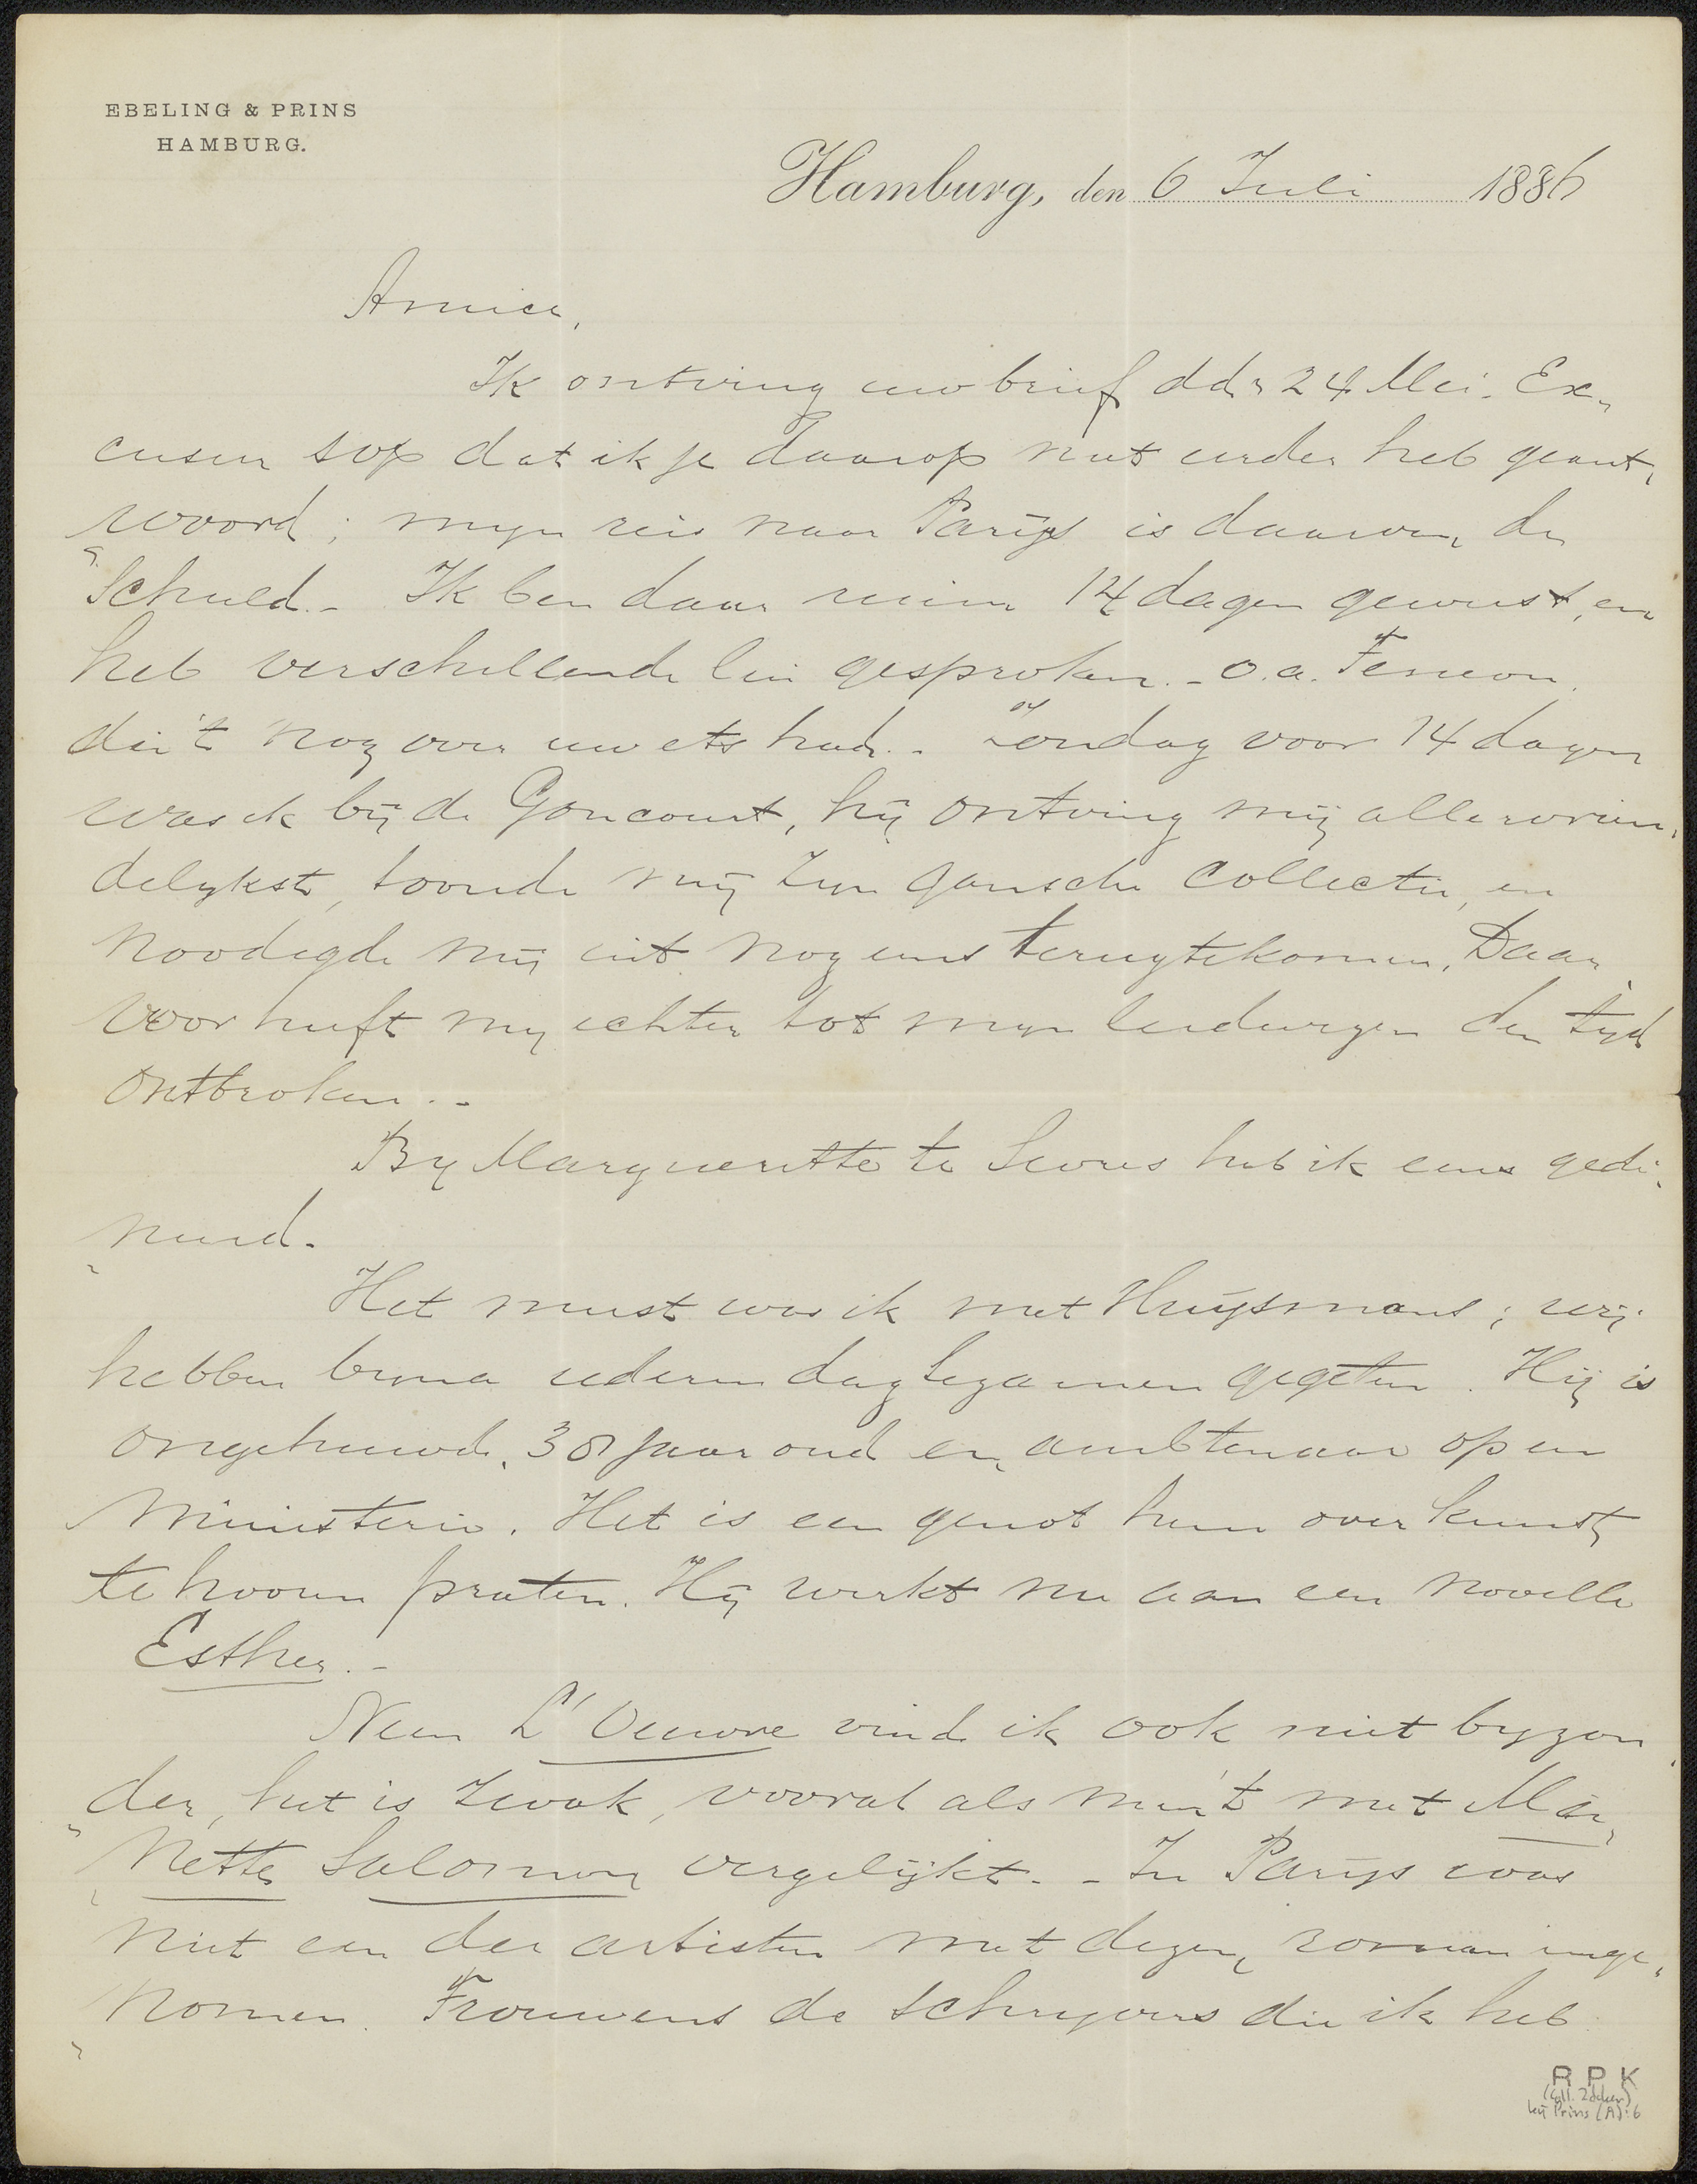 EBELING & PRINS
HAMBURG.
Hamburg, den 6 Juli 1886
Amice,
Ik ontving uw brief dd. 24 Mei. Ex-
cuseer dat ik je daarop niet eerder heb geant-
woord; mijn reis naar Parijs is daarvan de
schuld. - Ik ben daar ruim 14 dagen geweest, en
heb verschillende lui gesproken. - o.a. Feneon
die 't nog over uw ets had. - Zondag voor 14 dagen
was ik bij de Goncourt, hij ontving mij allervrien-
delykst, toonde mij zijn gansche collectie, en
noodigde mij uit nog eens terugtekomen. Daar-
voor heeft mij echter tot mijn leedwezen de tyd
ontbroken. -
By Margueritte te Sevres heb ik eens gedi-
neerd.
Het meest was ik met Huysmans; wij
hebben byna iederen dag tezamen gegeten. Hij is
ongehuwd, 38 jaar oud en ambtenaar op een
Ministerie. Het is een genot hem over kunst
te hooren praten. Hij werkt nu aan een novelle
Esther. -
Neen L'Oeuvre vind ik ook niet byzon-
der, het is zwak, vooral als men 't met Ma-
nette Salomon vergelijkt. - In Parijs was
niet een der artisten met dezen roman inge-
nomen. Trouwens de schryvers die ik heb
R P K
(Coll. Zilcken)
bij Prins (A): 6